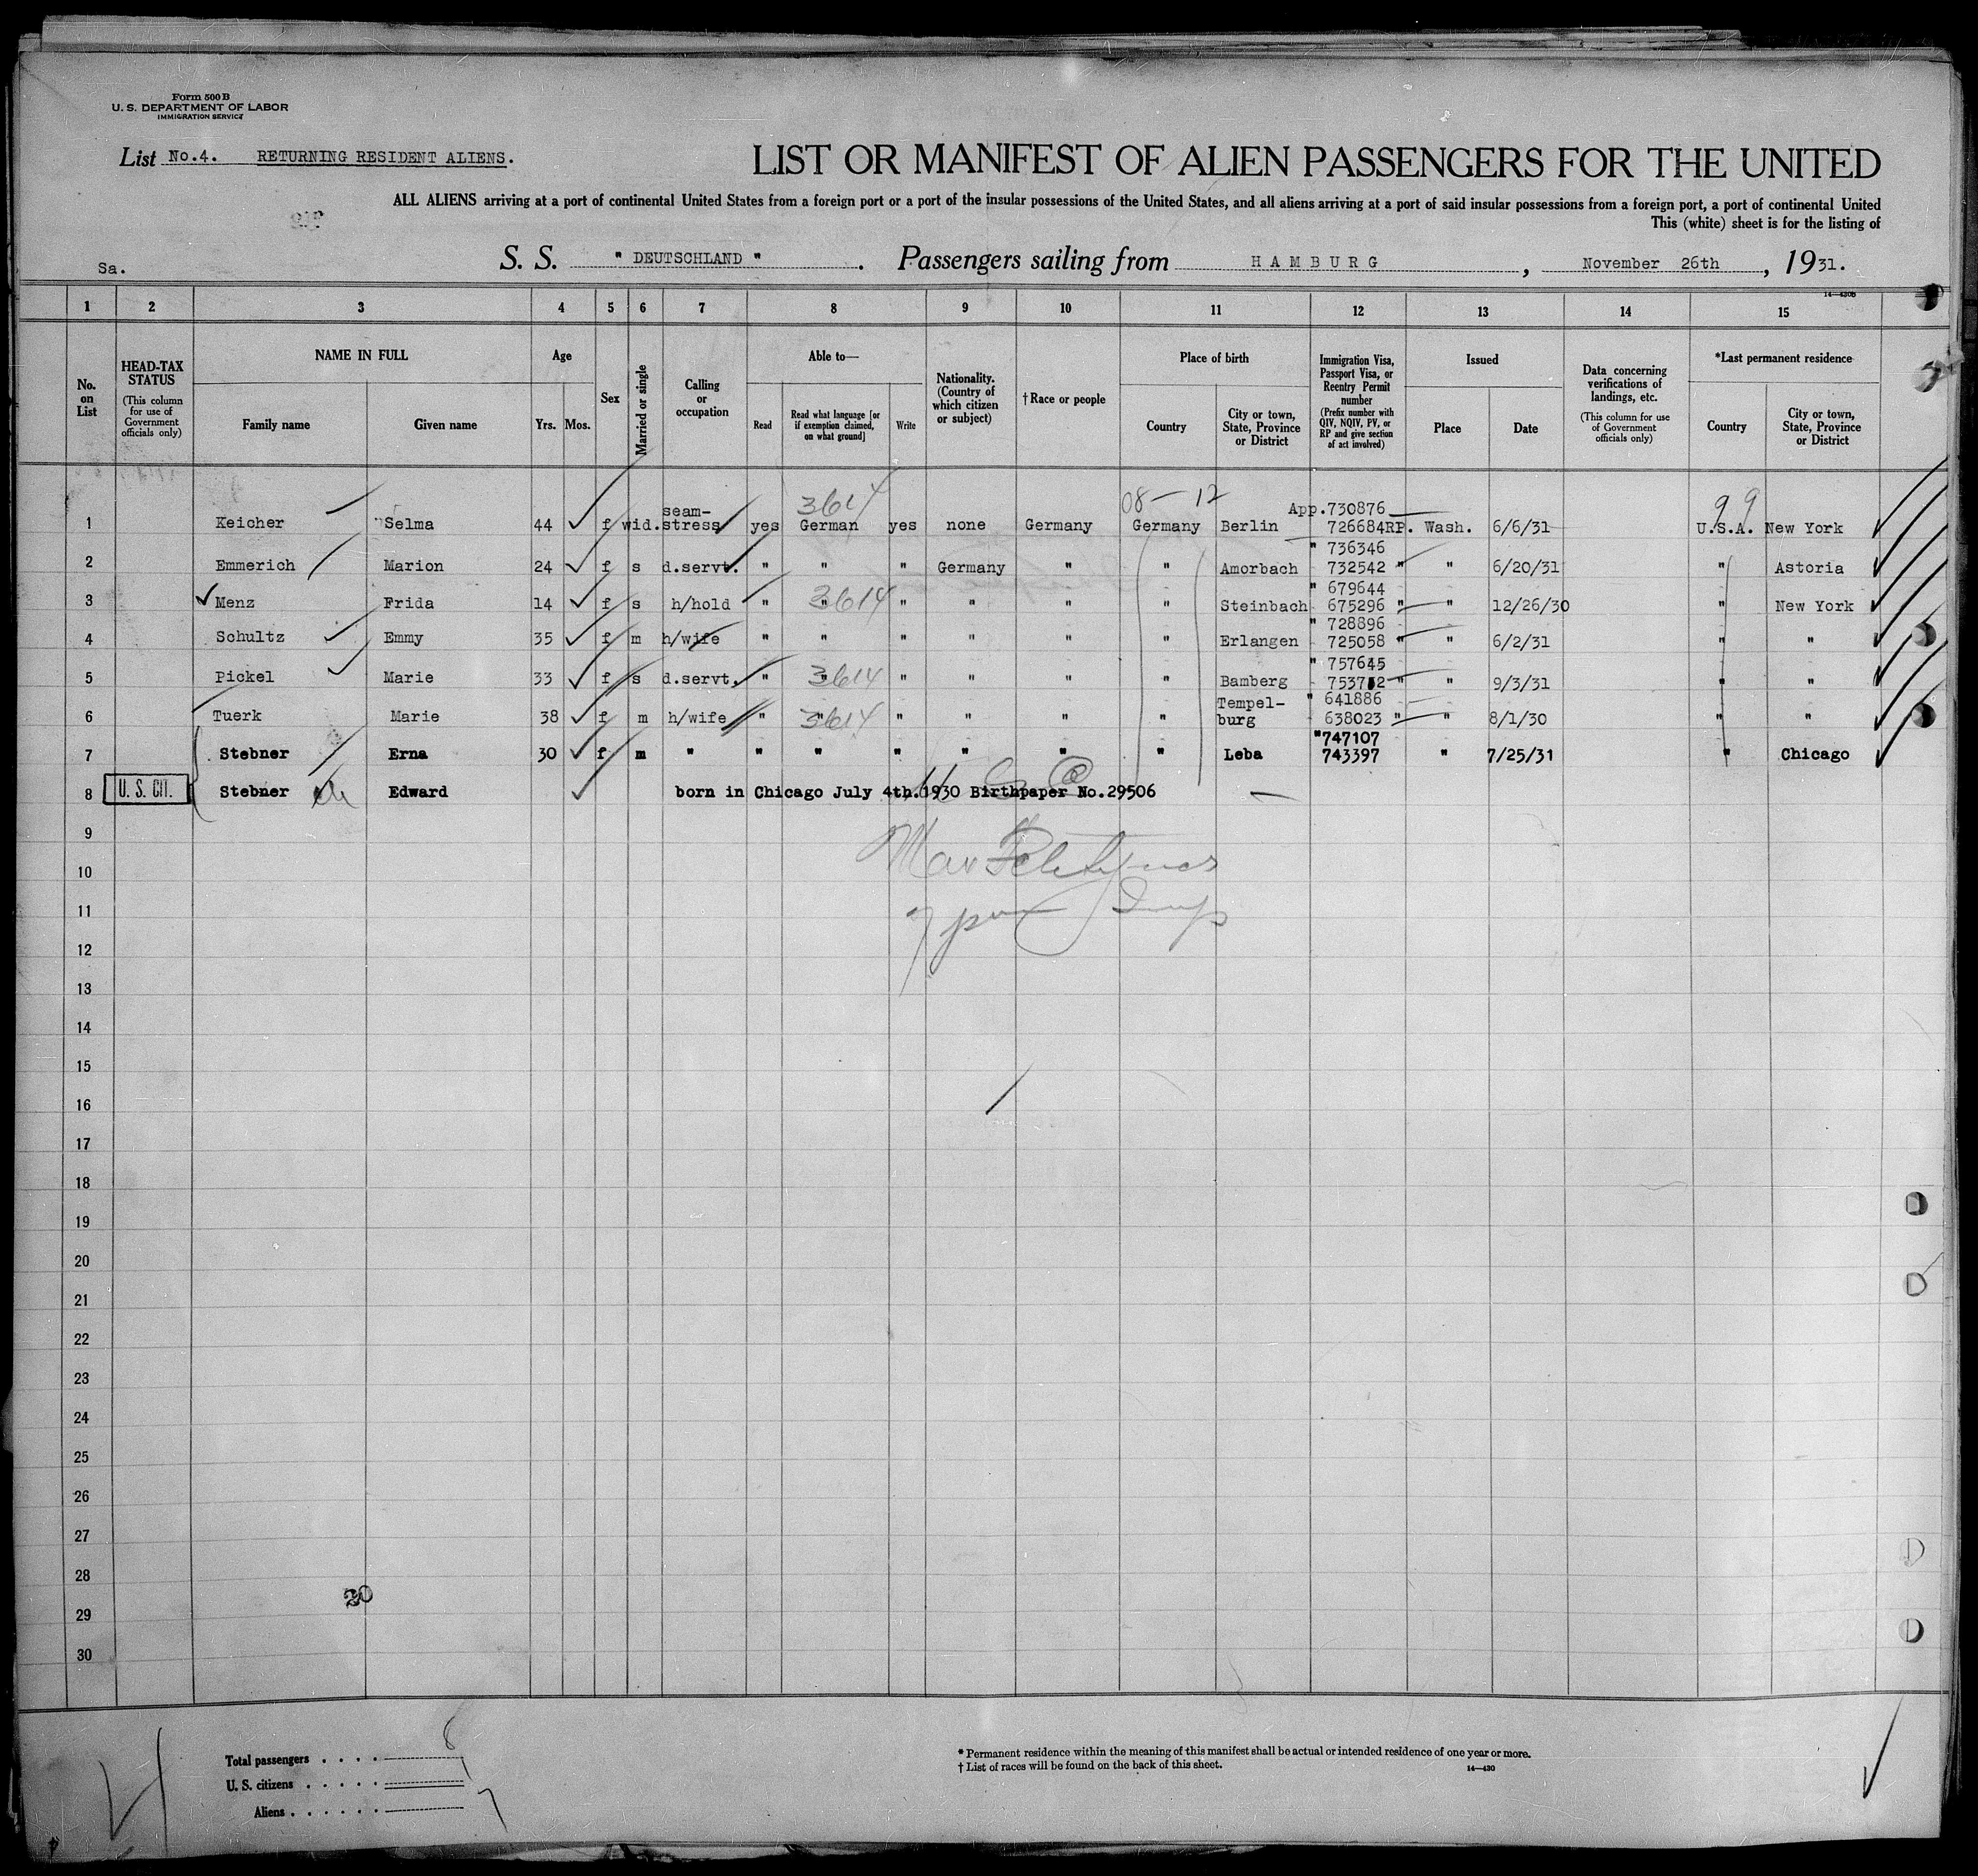 Form 500 B
U. S. DEPARTMENT OF LABOR
IMMIGRATION SERVICE
List No.4. RETURNING RESIDENT ALIENS.
LIST OR MANIFEST OF ALIEN PASSENGERS FOR THE UNITED
ALL ALIENS arriving at a port of continental United States from a foreign port or a port of the insular possessions of the United States, and all aliens arriving at a port of said insular possessions from a foreign port, a port of continental United
This (white) sheet is for the listing of
Sa.
S. S. " DEUTSCHLAND " . Passengers sailing from H A M B U R G , November 26th , 1931.
14—430B
1 2 3 4 5 6 7 8 9 10 11 12 13 14 15
No. on List
HEAD-TAX STATUS (This column for use of Government officials only)
NAME IN FULL
Family name Given name
Age
Yrs. Mos.
Sex
Married or single
Calling or occupation
Able to—
Read Read what language [or if exemption claimed, on what ground] Write
Nationality. (Country of which citizen or subject)
†Race or people
Place of birth
Country City or town, State, Province or District
Immigration Visa, Passport Visa, or Reentry Permit number (Prefix number with QIV, NQIV, PV, or RP and give section of act involved)
Issued
Place Date
Data concerning verifications of landings, etc. (This column for use of Government officials only)
*Last permanent residence
Country City or town, State, Province or District
3614 08 — 12 99
seam- App.730876
1 Keicher Selma 44 f wid. stress yes German yes none Germany Germany Berlin 726684RP. Wash. 6/6/31 U.S.A. New York
" 736346
2 Emmerich Marion 24 f s d.servt. " " " Germany " " Amorbach 732542 " " 6/20/31 " Astoria
3614 " 679644
3 Menz Frida 14 f s h/hold " " " " " " Steinbach 675296 " " 12/26/30 " New York
" 728896
4 Schultz Emmy 35 f m h/wife " " " " " " Erlangen 725058 " " 6/2/31 " "
3614 " 757645
5 Pickel Marie 33 f s d.servt. " " " " " " Bamberg 753752 " " 9/3/31 " "
3614 Tempel- " 641886
6 Tuerk Marie 38 f m h/wife " " " " " " burg 638023 " " 8/1/30 " "
"747107
7 Stebner Erna 30 f m " " " " " " " Leba 743397 " 7/25/31 " Chicago
8 U. S. CIT. Stebner Edward born in Chicago July 4th.1930 Birthpaper No.29506
9
10
11
12
13
14
15
16
17
18
19
20
21
22
23
24
25
26
27
28
29
30
20
Total passengers . . . . 8
U. S. citizens . . . . . 1
Aliens . . . . . . 7
* Permanent residence within the meaning of this manifest shall be actual or intended residence of one year or more.
† List of races will be found on the back of this sheet.
14—430